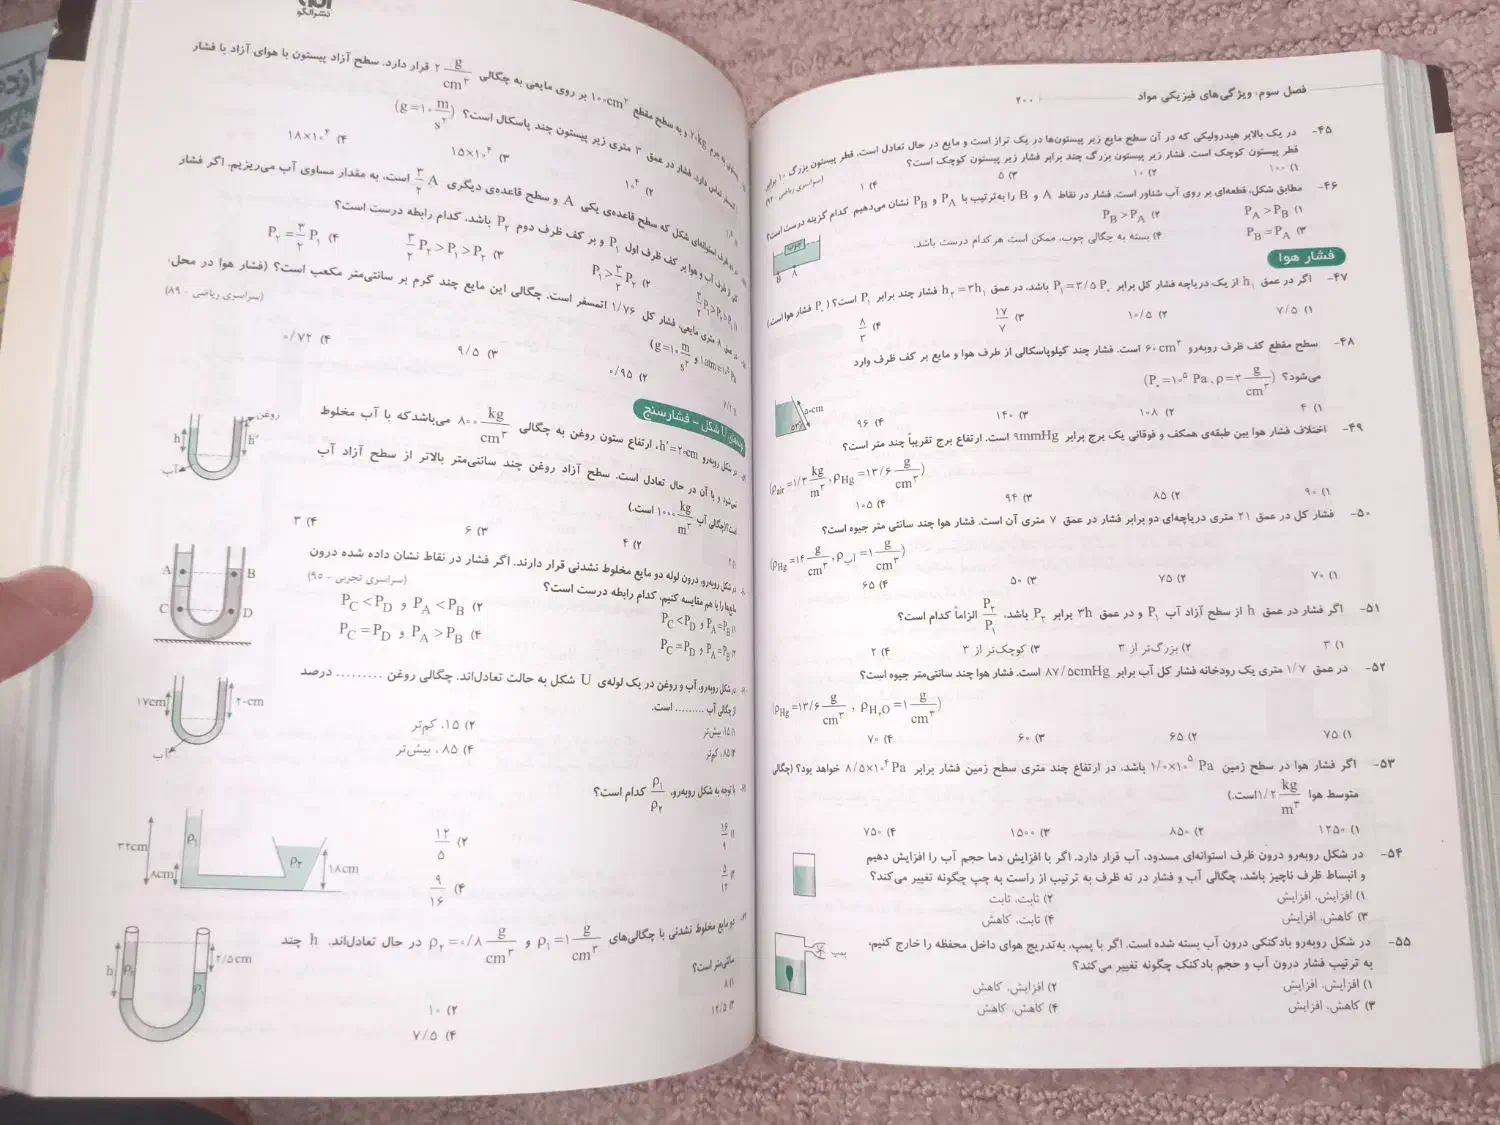 فصل سوم. ویژگی‌های فیزیکی مواد ۲۰۰
۴۵- در یک بالابر هیدرولیکی که در آن سطح مایع زیر پیستون‌ها در یک تراز است و مایع در حال تعادل است. قطر پیستون بزرگ ۱۰ برابر
قطر پیستون کوچک است. فشار زیر پیستون بزرگ چند برابر فشار زیر پیستون کوچک است؟ (سراسری ریاضی
۱) ۱۰۰ ۲) ۱۰ ۳) ۵ ۴) ۱
۴۶- مطابق شکل، قطعه‌ای بر روی آب شناور است. فشار در نقاط A و B را به‌ترتیب با P_A و P_B نشان می‌دهیم. کدام گزینه درست است؟
۱) P_A > P_B ۲) P_B > P_A
۳) P_B = P_A ۴) بسته به چگالی چوب، ممکن است هر کدام درست باشد.
چوب
B A
فشار هوا
۴۷- اگر در عمق h₁ از یک دریاچه فشار کل برابر P₁=۳/۵P₀ باشد، در عمق h₂=۳h₁ فشار چند برابر P₁ است؟ (P₀ فشار هوا است)
۱) ۷/۵ ۲) ۱۰/۵ ۳) ۱۷/۷ ۴) ۸/۳
۴۸- سطح مقطع کف ظرف روبه‌رو ۶۰cm² است. فشار چند کیلوپاسکالی از طرف هوا و مایع بر کف ظرف وارد
می‌شود؟ (P₀=۱۰⁵ Pa, ρ=۲ g/cm³)
۱) ۴ ۲) ۱۰۸ ۳) ۱۴۰ ۴) ۹۶
۵۰cm
۵۳°
۴۹- اختلاف فشار هوا بین طبقه‌ی همکف و فوقانی یک برج برابر ۹mmHg است. ارتفاع برج تقریباً چند متر است؟
(ρair=۱/۳ kg/m³, ρHg=۱۳/۶ g/cm³)
۱) ۹۰ ۲) ۸۵ ۳) ۹۴ ۴) ۱۰۵
۵۰- فشار کل در عمق ۲۱ متری دریاچه‌ای دو برابر فشار در عمق ۷ متری آن است. فشار هوا چند سانتی متر جیوه است؟
(ρHg=۱۴ g/cm³, ρآب=۱ g/cm³)
۱) ۷۰ ۲) ۷۵ ۳) ۵۰ ۴) ۶۵
۵۱- اگر فشار در عمق h از سطح آزاد آب P₁ و در عمق ۳h برابر P₂ باشد، P₂/P₁ الزاماً کدام است؟
۱) ۳ ۲) بزرگ‌تر از ۳ ۳) کوچک‌تر از ۳ ۴) ۲
۵۲- در عمق ۱/۷ متری یک رودخانه فشار کل آب برابر ۸۷/۵cmHg است. فشار هوا چند سانتی‌متر جیوه است؟
(ρHg=۱۳/۶ g/cm³ , ρH₂O=۱ g/cm³)
۱) ۷۵ ۲) ۶۵ ۳) ۶۰ ۴) ۷۰
۵۳- اگر فشار هوا در سطح زمین ۱/۰×۱۰⁵ Pa باشد، در ارتفاع چند متری سطح زمین فشار برابر ۸/۵×۱۰⁴ Pa خواهد بود؟ (چگالی
متوسط هوا ۱/۲ kg/m³ است.)
۱) ۱۲۵۰ ۲) ۸۵۰ ۳) ۱۵۰۰ ۴) ۷۵۰
۵۴- در شکل روبه‌رو درون ظرف استوانه‌ای مسدود، آب قرار دارد. اگر با افزایش دما حجم آب را افزایش دهیم
و انبساط ظرف ناچیز باشد، چگالی آب و فشار در ته ظرف به ترتیب از راست به چپ چگونه تغییر می‌کند؟
۱) افزایش، افزایش ۲) ثابت، ثابت
۳) کاهش، افزایش ۴) ثابت، کاهش
۵۵- در شکل روبه‌رو بادکنکی درون آب بسته شده است. اگر با پمپ، به‌تدریج هوای داخل محفظه را خارج کنیم،
به ترتیب فشار درون آب و حجم بادکنک چگونه تغییر می‌کند؟
۱) افزایش، افزایش ۲) افزایش، کاهش
۳) کاهش، افزایش ۴) کاهش، کاهش
پمپ
نشرالگو
جرم ۲۰kg و به سطح مقطع ۱۰۰cm² بر روی مایعی به چگالی ۲ g/cm³ قرار دارد. سطح آزاد پیستون با هوای آزاد با فشار
تماس دارد. فشار در عمق ۳ متری زیر پیستون چند پاسکال است؟ (g=۱۰ m/s²)
۲) ۱۰⁴ ۳) ۱۵×۱۰⁴ ۴) ۱۸×۱۰⁴
ظرف استوانه‌ای شکل که سطح قاعده‌ی یکی A و سطح قاعده‌ی دیگری ۳/۲ A است، به مقدار مساوی آب می‌ریزیم. اگر فشار
آب و هوا بر کف ظرف اول P₁ و بر کف ظرف دوم P₂ باشد، کدام رابطه درست است؟
۱) ۳/۲ P₂>P₁>P₂ ۲) P₁>۳/۲ P₂ ۳) ۳/۲ P₂>P₁>P₂ ۴) P₂=۳/۲ P₁
در عمق ۸ متری مایعی، فشار کل ۱/۷۶ اتمسفر است. چگالی این مایع چند گرم بر سانتی‌متر مکعب است؟ (فشار هوا در محل،
۱atm=۱۰⁵Pa و g=۱۰ m/s²) (سراسری ریاضی - ۸۹)
۲) ۰/۹۵ ۳) ۹/۵ ۴) ۰/۷۲
لوله‌های U شکل - فشارسنج
در شکل روبه‌رو h'=۲۰cm، ارتفاع ستون روغن به چگالی ۸۰۰ kg/cm³ می‌باشد که با آب مخلوط
نمی‌شود و با آن در حال تعادل است. سطح آزاد روغن چند سانتی‌متر بالاتر از سطح آزاد آب
است؟ (چگالی آب ۱۰۰۰ kg/m³ است.)
۲) ۴ ۳) ۶ ۴) ۳
روغن
h h'
آب
در شکل روبه‌رو، درون لوله دو مایع مخلوط نشدنی قرار دارند. اگر فشار در نقاط نشان داده شده درون
مایع‌ها را با هم مقایسه کنیم، کدام رابطه درست است؟ (سراسری تجربی - ۹۵)
۱) P_A=P_B و P_C<P_D ۲) P_A<P_B و P_C<P_D
۳) P_A=P_B و P_C=P_D ۴) P_A>P_B و P_C=P_D
A B
C D
در شکل روبه‌رو، آب و روغن در یک لوله‌ی U شکل به حالت تعادل‌اند. چگالی روغن ......... درصد
از چگالی آب ......... است.
۱) ۱۵، بیش‌تر ۲) ۱۵، کم‌تر
۳) ۸۵، کم‌تر ۴) ۸۵، بیش‌تر
۱۷cm ۲۰cm
آب
با توجه به شکل روبه‌رو، ρ₁/ρ₂ کدام است؟
۱) ۱۶/۹ ۲) ۱۲/۵
۳) ۵/۱۲ ۴) ۹/۱۶
۳۲cm ρ₁ ρ₂ ۱۸cm
۸cm
دو مایع مخلوط نشدنی با چگالی‌های ρ₁=۱ g/cm³ و ρ₂=۰/۸ g/cm³ در حال تعادل‌اند. h چند
سانتی‌متر است؟
۱) ۸ ۲) ۱۰
۳) ۱۲/۵ ۴) ۷/۵
h ρ₂ ۲/۵cm
ρ₁